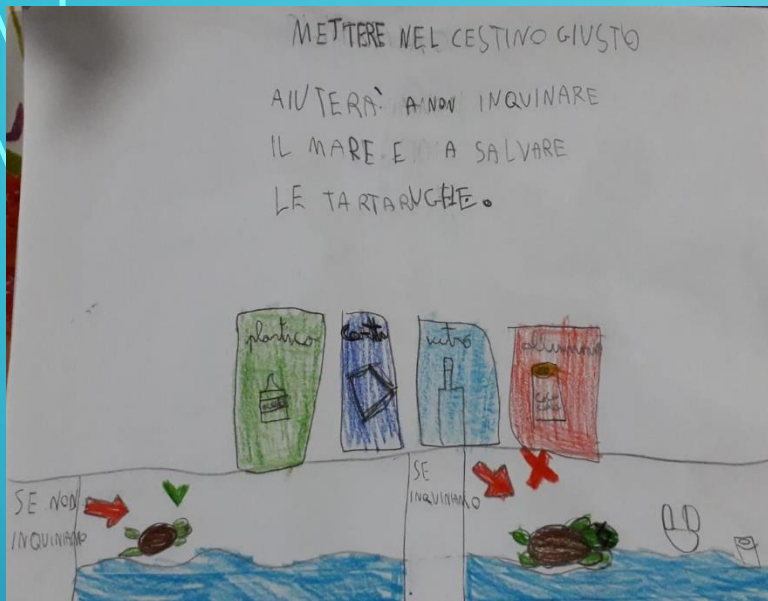 METTERE NEL CESTINO GIUSTO
AIUTERÀ A NON INQUINARE
IL MARE E A SALVARE
LE TARTARUGHE.
plastica
carta
vetro
alluminio
COCA COLA
SE NON
INQUINIAMO
SE
INQUINIAMO